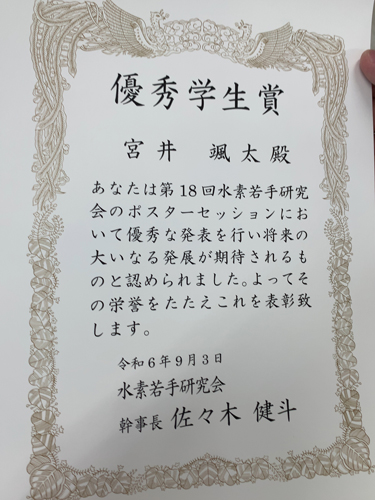 優秀学生賞
宮井 颯太殿
あなたは第18回水素若手研究
会のポスターセッションにお
いて優秀な発表を行い将来の
大いなる発展が期待されるも
のと認められました。よってそ
の栄誉をたたえこれを表彰致
します。
令和6年9月3日
水素若手研究会
幹事長 佐々木 健斗